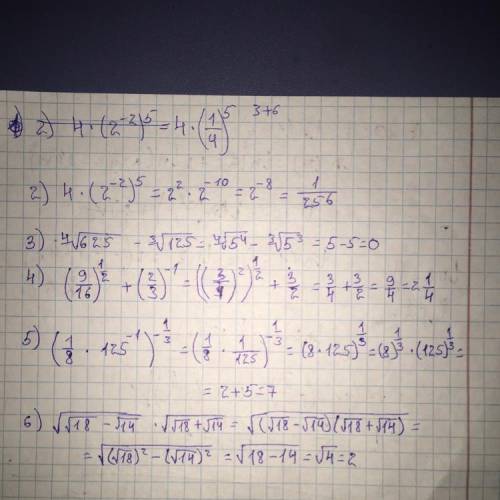 2) 4·(2⁻²)⁵ = 4·(1/4)⁵ 3+6
2) 4·(2⁻²)⁵ = 2²·2⁻¹⁰ = 2⁻⁸ = 1/256
3) ⁴√625 - ³√125 = ⁴√5⁴ - ³√5³ = 5-5=0
4) (9/16)^(1/2) + (2/3)⁻¹ = ((3/4)²)^(1/2) + 3/2 = 3/4 + 3/2 = 9/4 = 2 1/4
5) (1/8 · 125⁻¹)^(-1/3) = (1/8 · 1/125)^(-1/3) = (8·125)^(1/3) = (8)^(1/3) · (125)^(1/3) =
= 2+5=7
6) √(√18 - √14) · √(√18 + √14) = √((√18 - √14)(√18 + √14)) =
= √((√18)² - (√14)²) = √(18-14) = √4 = 2